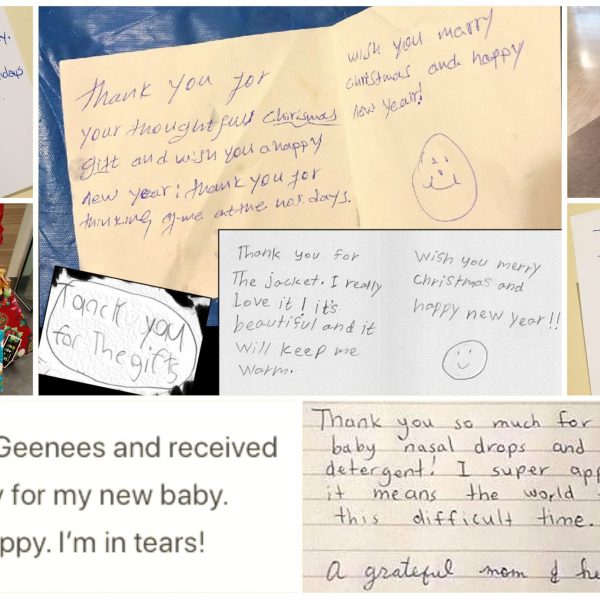 Thank you for
your thoughtfull Chirismas
gift and wish you a happy
new year! thank you for
thinking of me at the
wish you marry
christmas and happy
new year!
Tanck you
for The gifts
Thank you for
The jacket. I really
Love it! it's
beautiful and it
Will keep me
Warm.
Wish you merry
Christmas and
happy new year!!
Geenees and received
for my new baby.
I'm in tears!
Thank you so much for
baby nasal drops and
detergent! I super
it means the world
this difficult time.
A grateful mom &